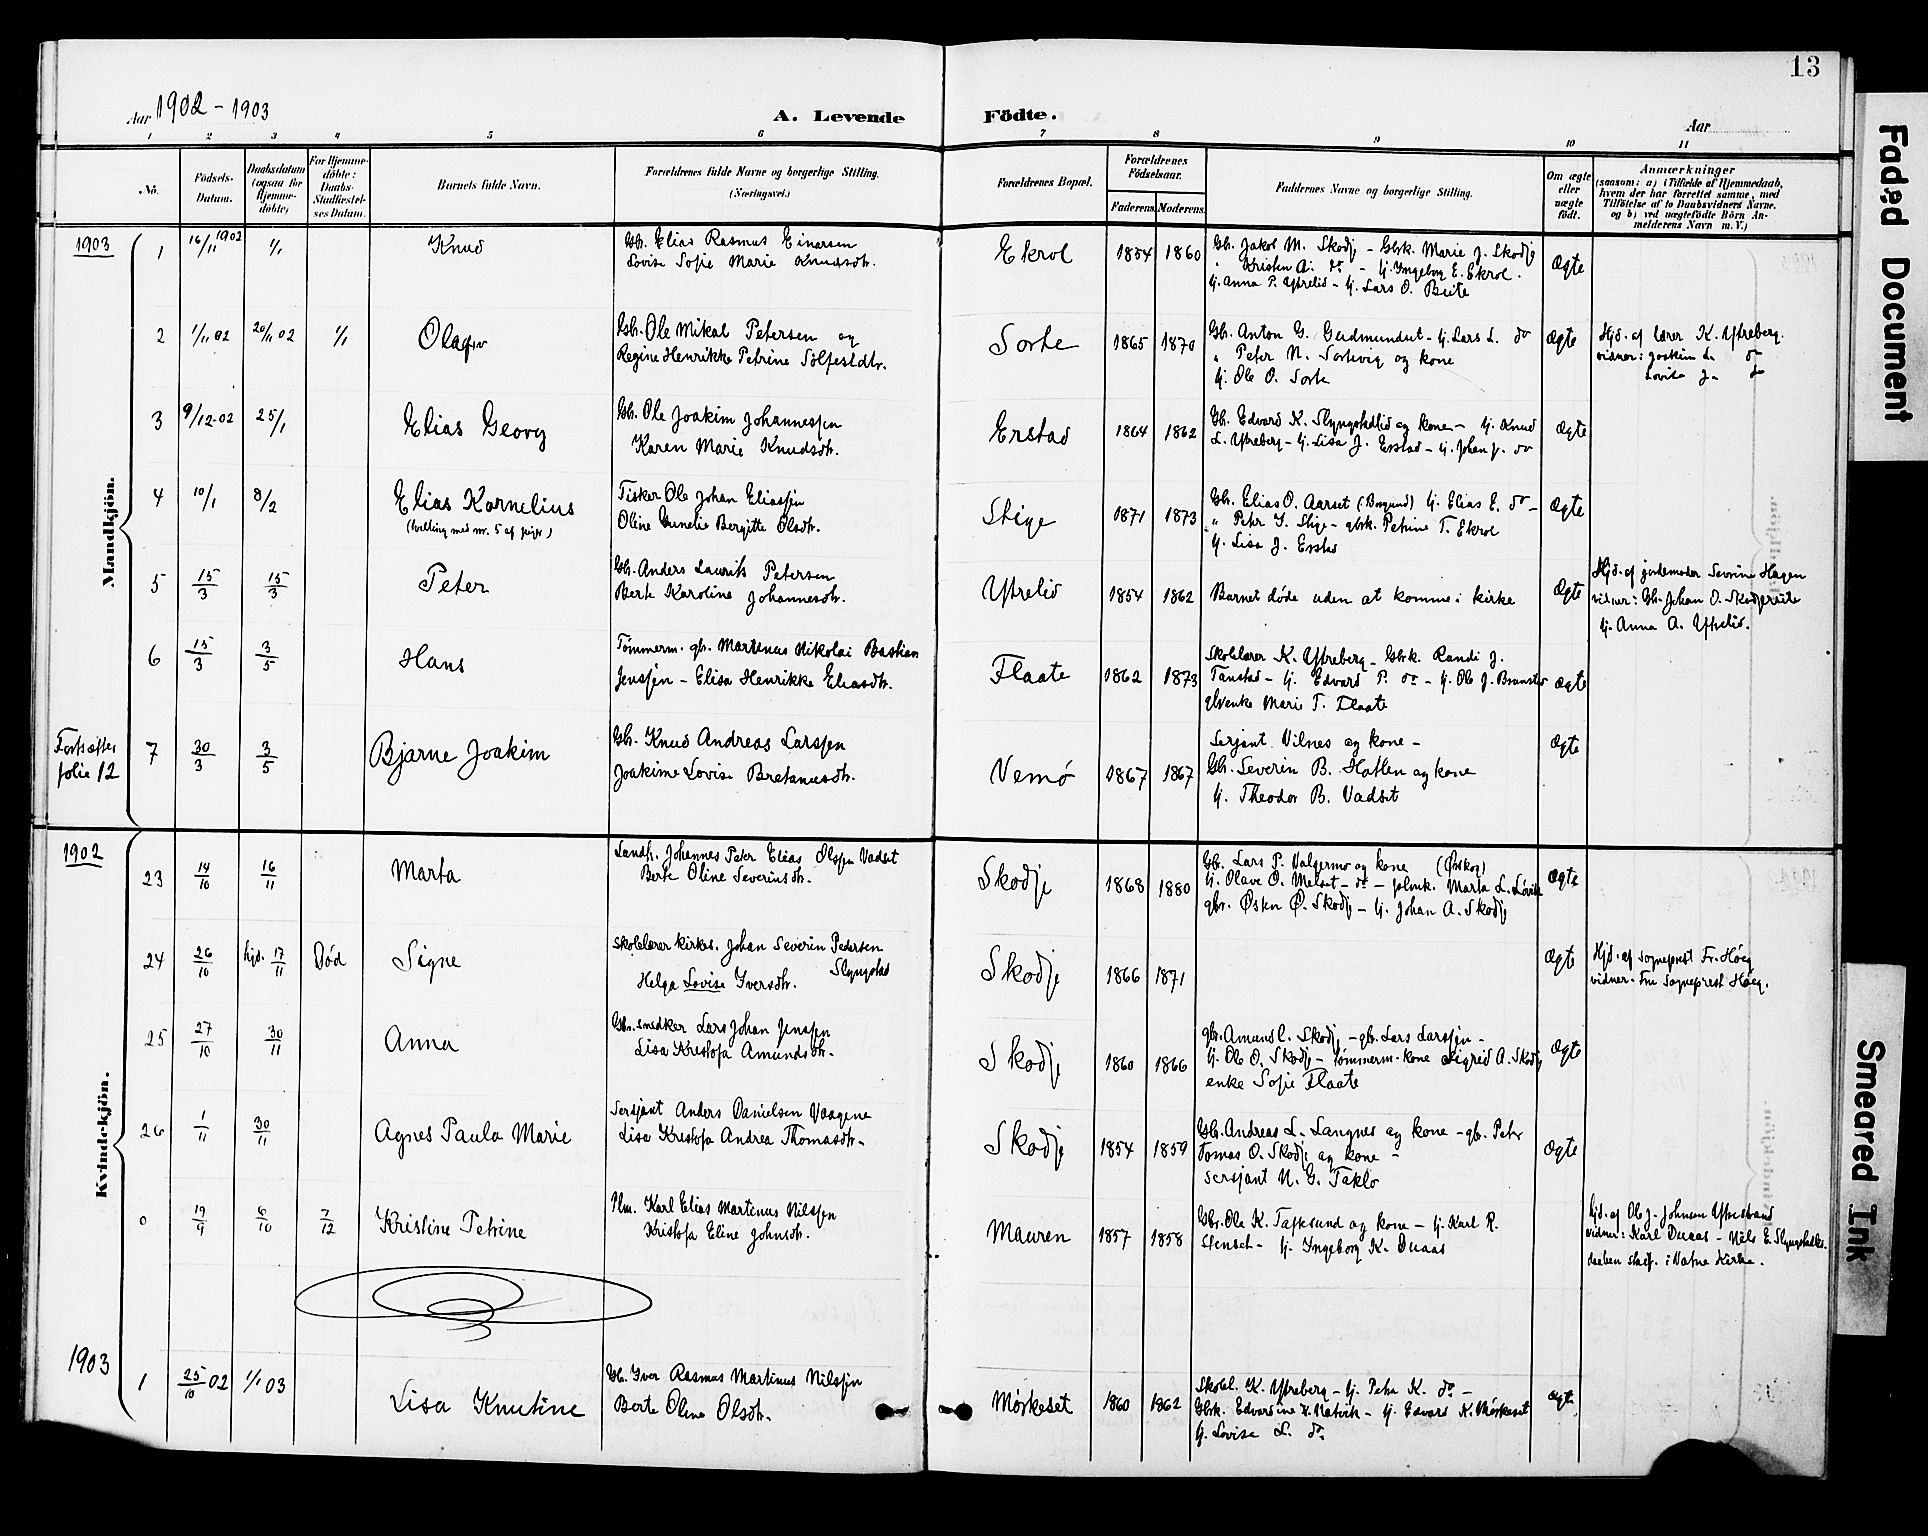 13
Aar 1902 - 1903
A. Levende Födte.
Aar
1 2 3 4 5 6 7 8 9 10 11
No.
Födsels-Datum.
Daabsdatum (ogsaa for Hjemme-döbte)
For Hjemme-döbte: Daabs-Stadfæstel-ses Datum.
Barnets fulde Navn.
Forældrenes fulde Navne og borgerlige Stilling. (Næringsvei.)
Forældrenes Bopæl.
Forældrenes Födselsaar.
Faderens. Moderens.
Faddernes Navne og borgerlige Stilling.
Om ægte eller uægte födt.
Anmærkninger
(saasom: a) i Tilfælde af Hjemmedaab, hvem der har forrettet samme, med Tilföielse af to Daabsvidners Navne, og b) ved uægtefödte Börn An-melderens Navn m. V.)
Mandkjön.
1903
1 16/11 1902 1/1 Knud
Gb. Elias Rasmus Einarsen
Lovise Sofie Marie Knudsdtr.
Ekrol 1854 1860
Gb. Jakob M. Skodj - Gbk. Marie J. Skodj
" Kristen A. do - Ij. Ingeborg E. Ekrol.
Ij. Anna P. Ytrelid - Ij. Lars O. Beite
Ægte
2 1/11 02 20/11 02 1/1 Olaf
Gb. Ole Mikal Petersen og
Regine Henrikke Petrine Solfestdtr.
Sorte 1865 1870
Gb. Anton G. Gudmundset - Ij. Lars L. do
" Peter N. Sortevig og kone
Ij. Ole O. Sorte
Ægte
Hjd. af lærer K. Ytreberg.
vidner: Joakim L. do
Lovise J. do
3 9/12-02 25/1 Elias Georg
Gb. Ole Joakim Johannessen
Karen Marie Knudsdtr.
Erstad 1864 1862
Gb. Edvard K. Slyngstadlid og kone - Ij. Knud
L. Ytreberg - Ij. Lisa J. Erstad - Ij. Johan J. do
Ægte
4 10/1 8/2 Elias Kornelius
(tvilling med nr. 5 af piger)
Fisker Ole Johan Eliassen
Oline Gunelie Bergitte Olsdtr.
Stige 1871 1873
Gb. Elias O. Aarset (Borgund) Ij. Elias E. do -
" Peter I. Stige - gbrk. Petrine T. Ekrol
Ij. Lisa J. Erstad
Ægte
5 15/3 15/3 Peter
Gb. Anders Laurits Petersen
Berte Karoline Johannesdtr.
Ytrelid 1854 1862
Barnet döde uden at komme i kirke
Ægte
Hjd. af jordemoder Severine Hagen
vidner: Gb. Johan O. Skodjereite
Ij. Anna A. Ytrelid.
6 15/3 3/5 Hans
Tømmerm. gb. Martinus Nikolai Bastian
Jenssen - Elisa Henrikke Eliasdtr.
Flaate 1862 1873
Skolelærer K. Ytreberg - Gbrk. Randi J.
Tanstad - Ij. Edvard P. do - Ij. Ole J. Branstad
gbrenke Marie T. Flaate
Ægte
Fortsættes
folio 12
7 30/3 3/5 Bjarne Joakim
Gb. Knud Andreas Larssen
Joakime Lovise Bretanusdtr.
Vemö 1867 1867
Serjant Vilnes og kone -
Gb. Severin B. Hatlen og kone
Ij. Theodor B. Vadset
Ægte
Kvindekjön.
1902
23 14/10 16/11 Marta
Landh. Johannes Peter Elias Olssen Vadset
Berte Oline Severinsdtr.
Skodje 1868 1880
Gb. Lars P. Valgermo og kone (Ørskog)
Ij. Olave O. Melset - do - Marta L. Løvik
gbr. Østen O. Skodj - Ij. Johan A. Skodj
Ægte
24 26/10 hjd. 17/11 Död Signe
Skolelærer kirkes. Johan Severin Pedersen
Slyngstad
Helga Lovise Iversdtr.
Skodje 1866 1871
Ægte
Hjd. af sogneprest Fr. Høeg
vidner - Fru sogneprest Høeg.
25 27/10 30/11 Anna
Gbr. snedker Lars Johan Jenssen
Lisa Kristofa Amundsdtr.
Skodje 1860 1866
gbr. Amund L. Skodj - gbr. Lars Larssen -
Ij. Ole O. Skodj - tømmerm. kone Sigrid A. Skodj
enke Sofie Flaate
Ægte
26 1/11 30/11 Agnes Paula Marie
Sersjant Anders Danielsen Vaagene
Lisa Kristofa Andrea Thomasdtr.
Skodje 1854 1859
Gb. Andreas L. Langnes og kone - gb. Peter
Tomas O. Skodj og kone -
Sersjant N. G. Taklo
Ægte
0 19/9 6/10 7/12 Kristine Petrine
Plm. Karl Elias Martinus Nilssen
Kristofa Eline Johnsdtr.
Mauren 1857 1858
Gbr. Ole K. Tafjesund og kone - Ij. Karl R.
Stenset - Ij. Ingeborg K. Duaas
Hjd. af Ole J. Johnsen Ytrestrand
vidner: Karl Duaas - Nils E. Slyngstadli.
daaben stadf. i Vatne Kirke.
1903
1 25/10 02 1/1 03 Lisa Knutine
Gb. Iver Rasmus Martinus Nilssen
Berte Oline Olsdtr.
Mørkeset 1860 1862
Skolel. K. Ytreberg - Ij. Petra K. do -
Gbrk. Edvardine K. Natvik - Ij. Edvard K. Mørkeset
Ij. Lovise L. do
Ægte
Faded Document
Smeared Ink